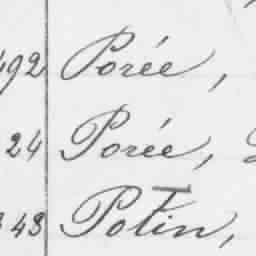 492 Porée,
24 Porée,
43 Potin,